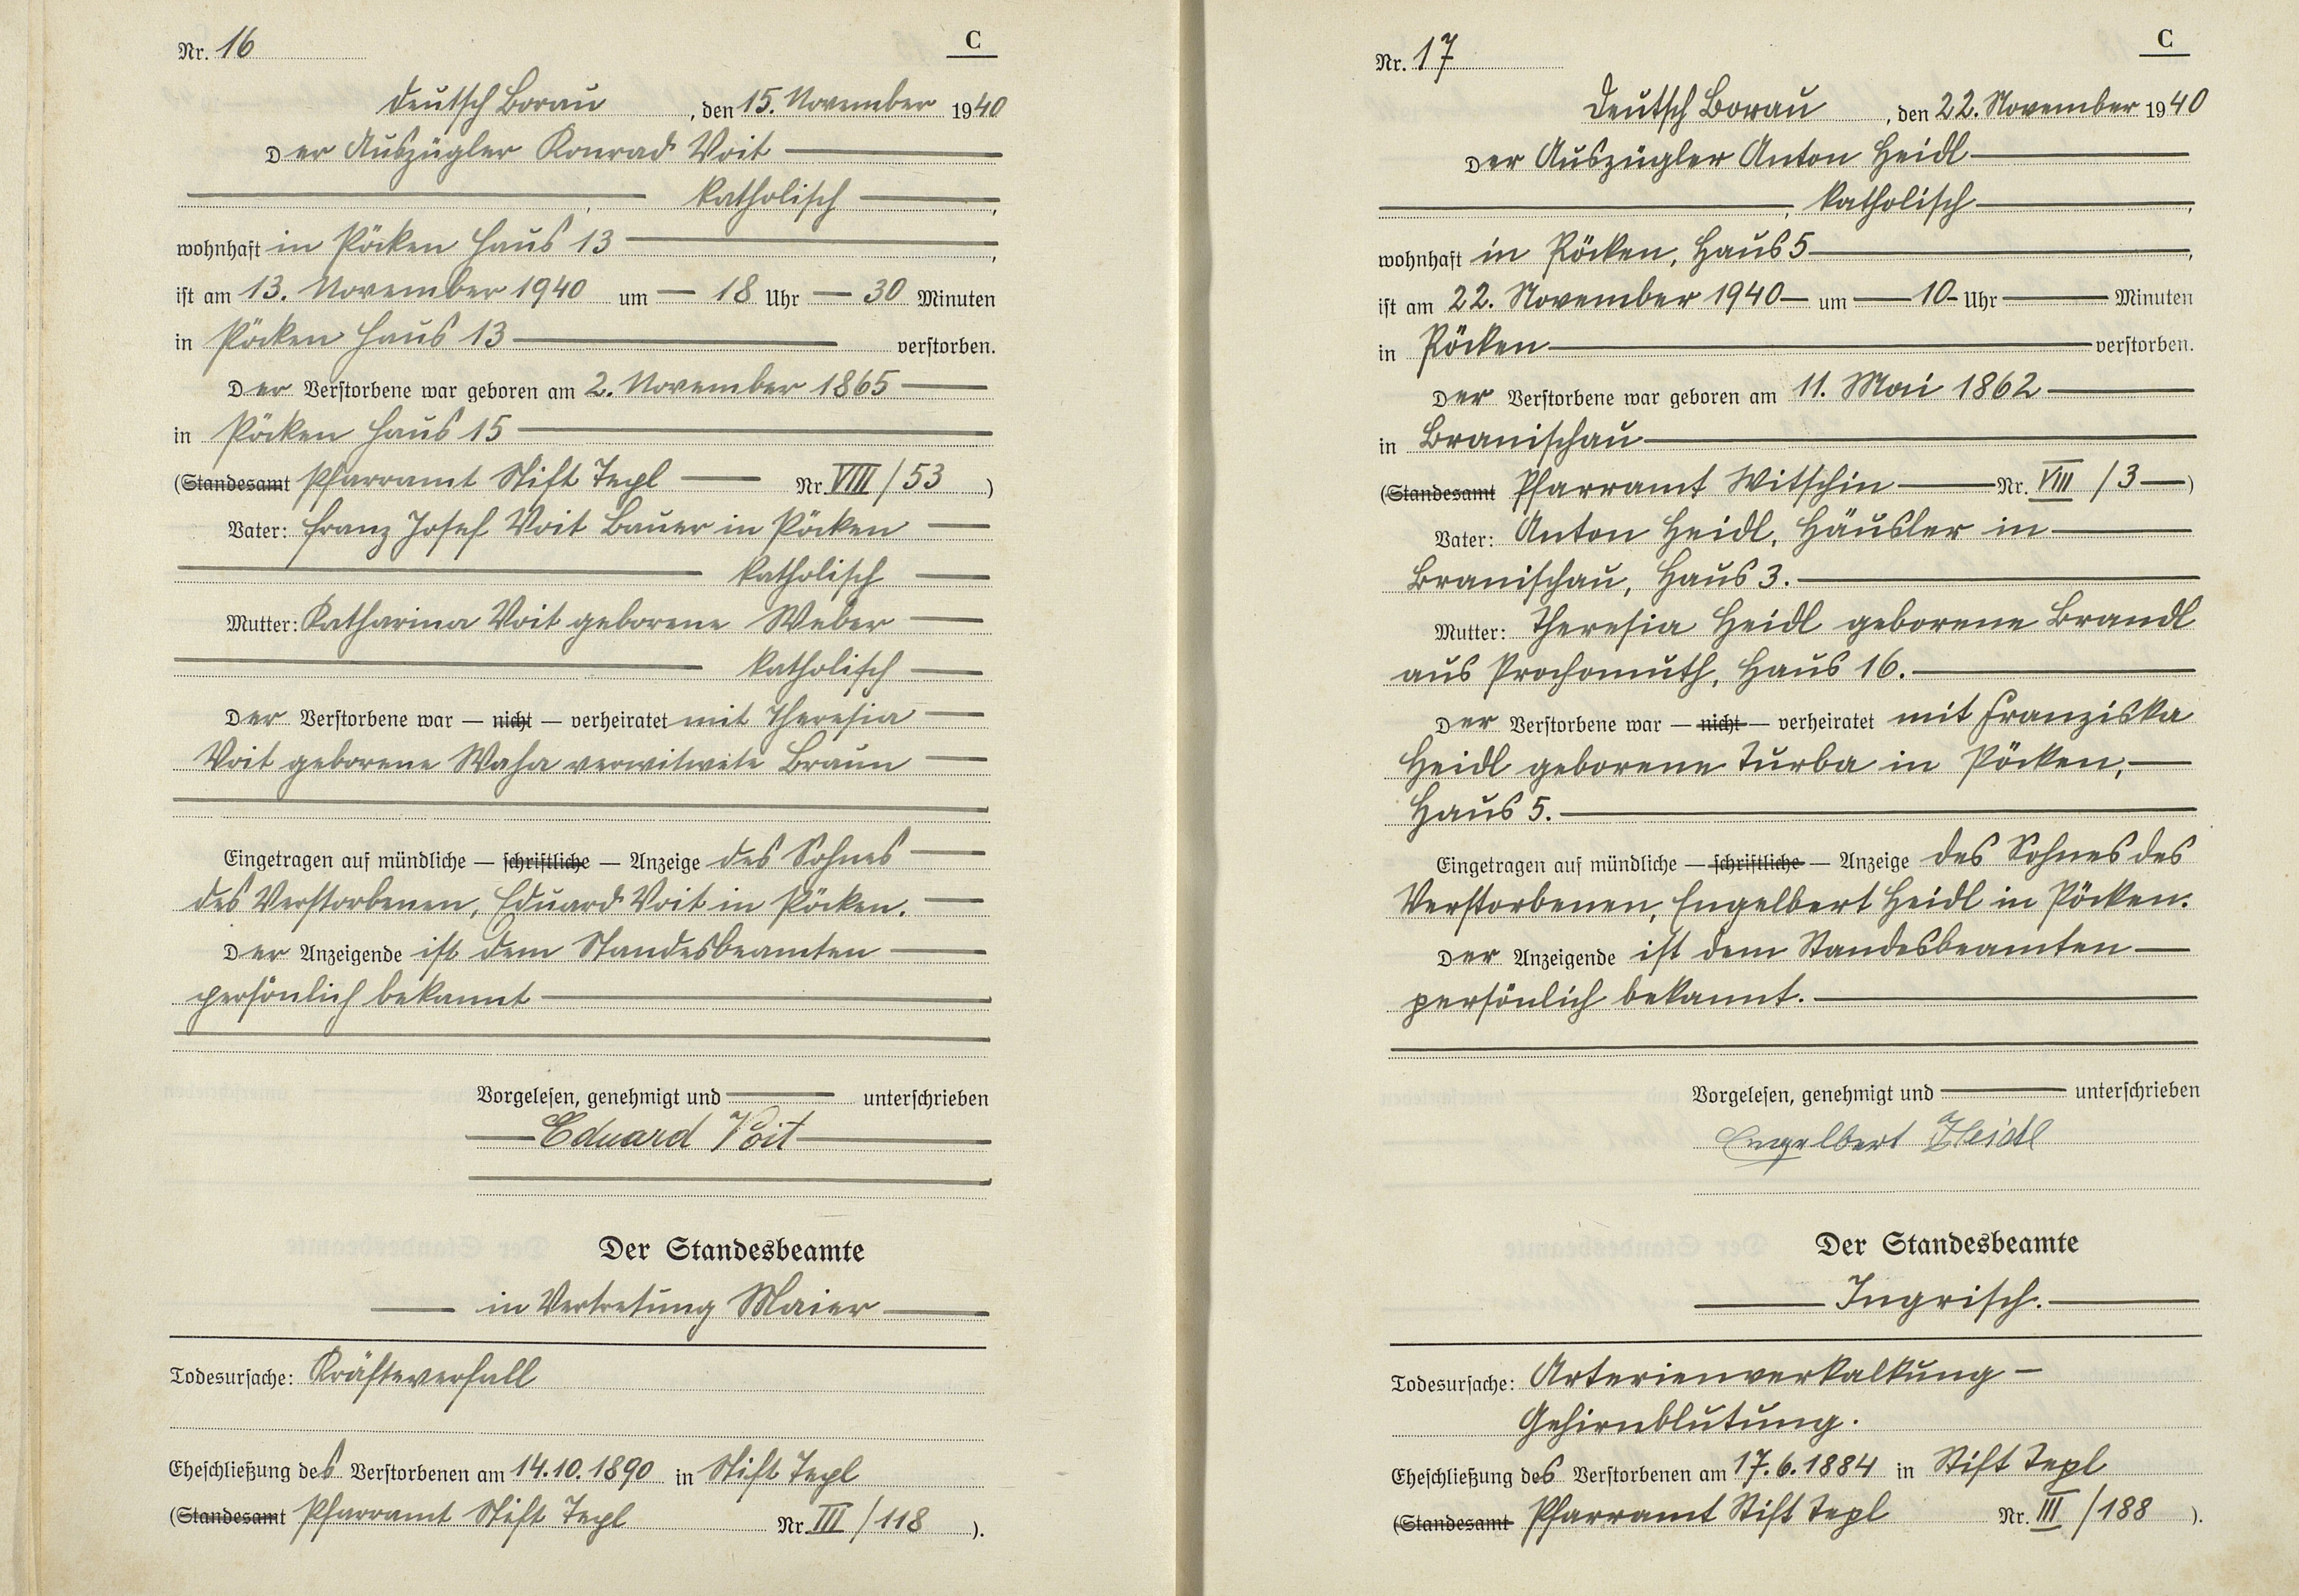 Nr. 16
C
Deutsch Borau, den 15. November 1940
Der Auszügler Konrad Voit
katholisch,
wohnhaft in Pöcken Haus 13,
ist am 13. November 1940 um 18 Uhr 30 Minuten
in Pöcken Haus 13 verstorben.
Der Verstorbene war geboren am 2. November 1865
in Pöcken Haus 15
(Standesamt Pfarramt Stift Tepl Nr. VIII / 53)
Vater: Franz Josef Voit Bauer in Pöcken
katholisch
Mutter: Katharina Voit geborene Weber
katholisch
Der Verstorbene war — nicht — verheiratet mit Theresia
Voit geborene Waha verwitwete Braun
Eingetragen auf mündliche — schriftliche — Anzeige des Sohnes
des Verstorbenen, Eduard Voit in Pöcken.
Der Anzeigende ist dem Standesbeamten
persönlich bekannt
Vorgelesen, genehmigt und unterschrieben
Eduard Voit
Der Standesbeamte
in Vertretung Maier
Todesursache: Kräfteverfall
Eheschließung des Verstorbenen am 14.10.1890 in Stift Tepl
(Standesamt Pfarramt Stift Tepl Nr. III / 118).
Nr. 17
C
Deutsch Borau, den 22. November 1940
Der Auszügler Anton Heidl
, katholisch,
wohnhaft in Pöcken, Haus 5,
ist am 22. November 1940 um 10 Uhr Minuten
in Pöcken verstorben.
Der Verstorbene war geboren am 11. Mai 1862
in Branischau
(Standesamt Pfarramt Witschin Nr. VIII / 3)
Vater: Anton Heidl, Häusler in
Branischau, Haus 3.
Mutter: Theresia Heidl geborene Brandl
aus Prochomuth, Haus 16.
Der Verstorbene war — nicht — verheiratet mit Franziska
Heidl geborene Turba in Pöcken,
Haus 5.
Eingetragen auf mündliche — schriftliche — Anzeige des Sohnes des
Verstorbenen, Engelbert Heidl in Pöcken.
Der Anzeigende ist dem Standesbeamten
persönlich bekannt.
Vorgelesen, genehmigt und unterschrieben
Engelbert Heidl
Der Standesbeamte
Ingrisch.
Todesursache: Arterienverkalkung –
Gehirnblutung.
Eheschließung des Verstorbenen am 17.6.1884 in Stift Tepl
(Standesamt Pfarramt Stift Tepl Nr. III / 188).